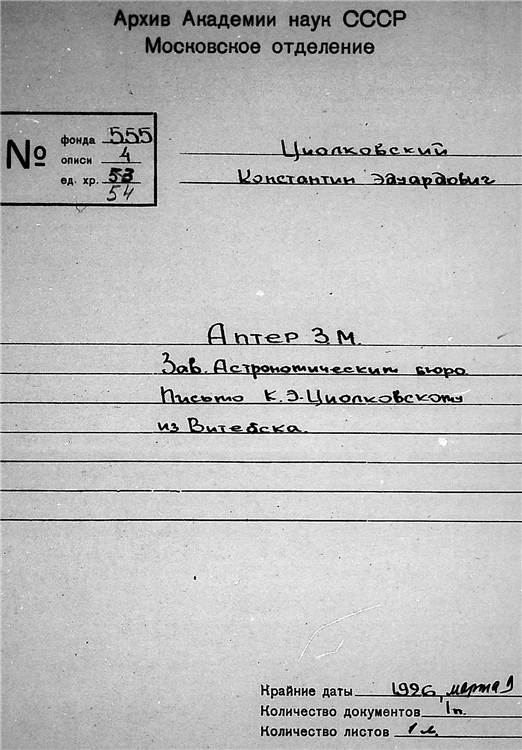 Архив Академии наук СССР
Московское отделение
№ фонда 555
описи 4
ед. хр. 53
54
Циолковский
Константин Эдуардович
Аптер З.М.
Зав. Астрономическим бюро.
Письмо К.Э. Циолковскому
из Витебска.
Крайние даты 1926, марта 9
Количество документов 1п.
Количество листов 1 л.